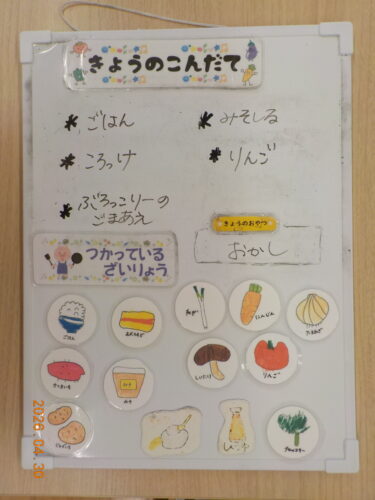 きょうのこんだて
* ごはん
* みそしる
* ころっけ
* りんご
* ぶろっこりーの
ごまあえ
きょうのおやつ
おかし
つかっている
ざいりょう
ごはん
ねぎ
にんじん
たまねぎ
さつまいも
みそ
しいたけ
りんご
じゃがいも
ブロッコリー
2026.04.30